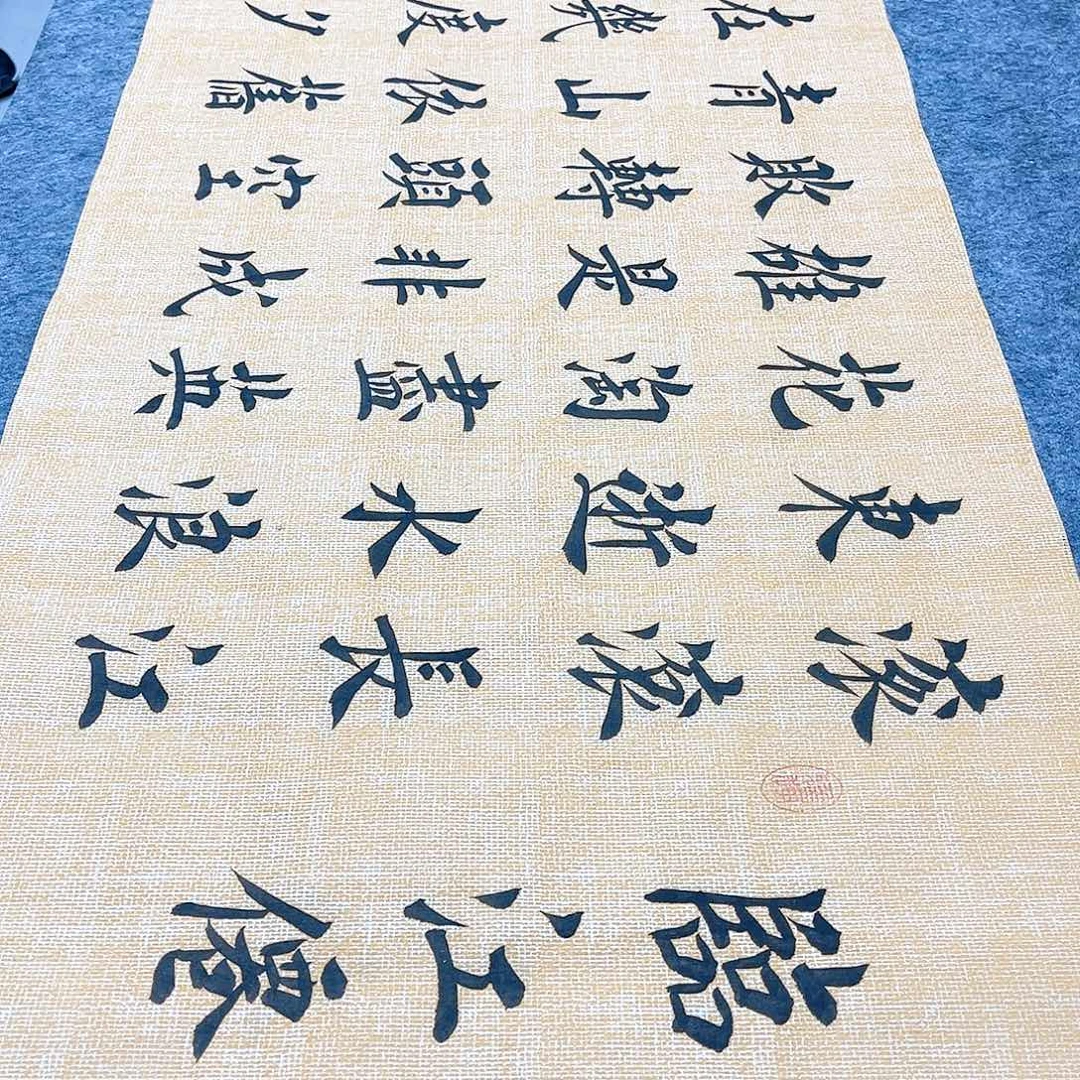 臨江僊
滾滾長江
東逝水浪
花淘盡英
雄是非成
敗轉頭空
青山依舊
在幾度夕